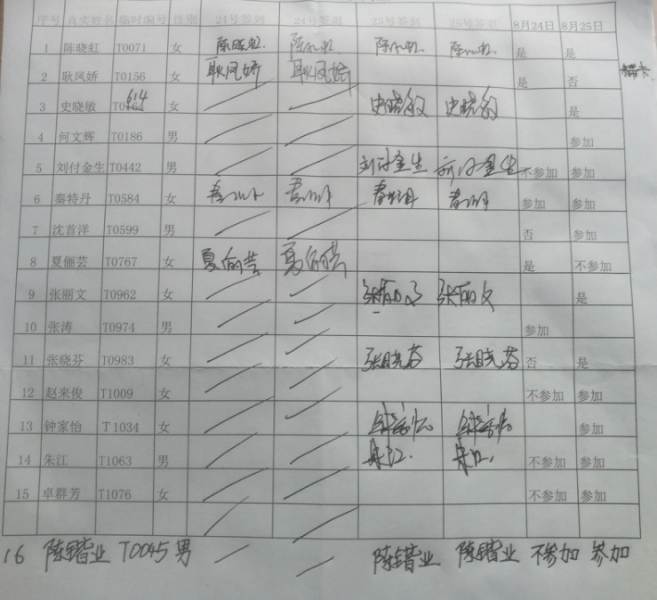 序号 真实姓名 临时编号 性别 24号签到 24号签退 25号签到 25号签退 8月24日 8月25日
1 陈晓虹 T0071 女 陈晓虹 陈晓虹 陈晓虹 陈晓虹 是 是
2 耿凤娇 T0156 女 耿凤娇 耿凤娇 是 否
3 史晓敏 女 史晓敏 史晓敏 是
4 何文辉 T0186 男 参加
5 刘付金生 T0442 男 刘付金生 刘付金生 不参加 参加
6 秦特丹 T0584 女 参加 参加
7 沈首洋 T0599 男 否 参加
8 夏俪芸 T0767 女 夏俪芸 夏俪芸 是 不参加
9 张丽文 T0962 女 张丽文 张丽文 是
10 张涛 T0974 男 参加
11 张晓芬 T0983 女 张晓芬 张晓芬 否 是
12 赵来俊 T1009 女 不参加 参加
13 钟家怡 T1034 女 钟家怡 钟家怡 参加
14 朱江 T1063 男 朱江 朱江 不参加 参加
15 卓群芳 T1076 女 不参加 参加
16 陈锴业 T0045 男 陈锴业 陈锴业 不参加 参加